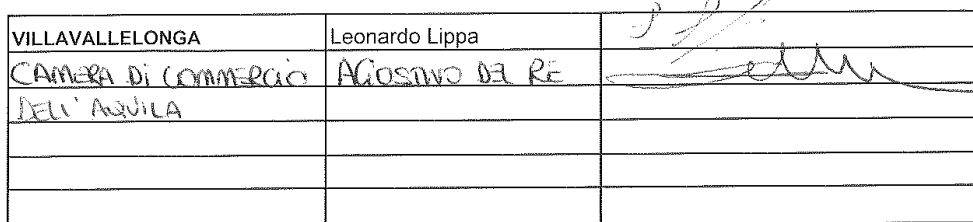 VILLAVALLELONGA Leonardo Lippa
CAMERA DI COMMERCIO AGOSTINO DEL RE
DELL'AQUILA